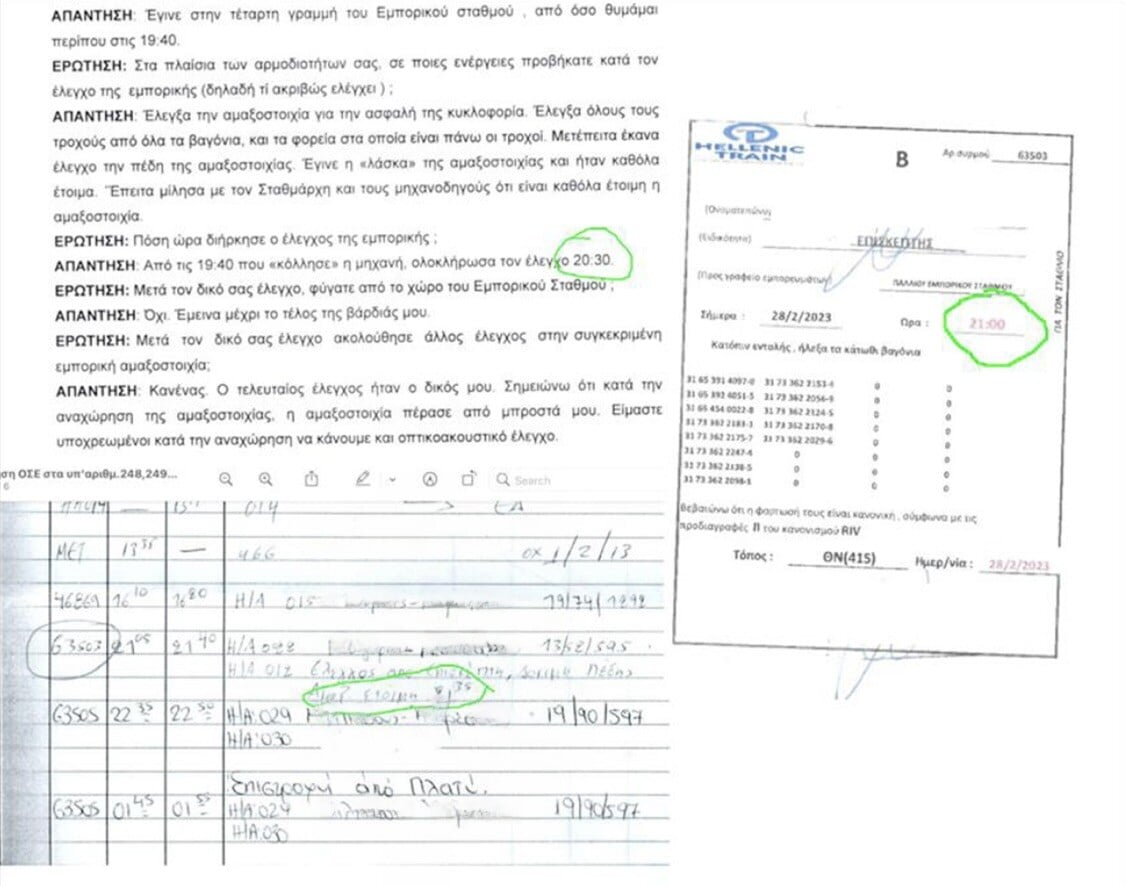 ΑΠΑΝΤΗΣΗ: Έγινε στην τέταρτη γραμμή του Εμπορικού σταθμού , από όσο θυμάμαι
περίπου στις 19:40.
ΕΡΩΤΗΣΗ: Στα πλαίσια των αρμοδιοτήτων σας, σε ποιες ενέργειες προβήκατε κατά τον
έλεγχο της εμπορικής (δηλαδή τί ακριβώς ελέγχει ) ;
ΑΠΑΝΤΗΣΗ: Έλεγξα την αμαξοστοιχία για την ασφαλή της κυκλοφορία. Έλεγξα όλους τους
τροχούς από όλα τα βαγόνια, και τα φορεία στα οποία είναι πάνω οι τροχοί. Μετέπειτα έκανα
έλεγχο την πέδη της αμαξοστοιχίας. Έγινε η «λάσκα» της αμαξοστοιχίας και ήταν καθόλα
έτοιμα. Έπειτα μίλησα με τον Σταθμάρχη και τους μηχανοδηγούς ότι είναι καθόλα έτοιμη η
αμαξοστοιχία.
ΕΡΩΤΗΣΗ: Πόση ώρα διήρκησε ο έλεγχος της εμπορικής ;
ΑΠΑΝΤΗΣΗ: Από τις 19:40 που «κόλλησε» η μηχανή, ολοκλήρωσα τον έλεγχο 20:30.
ΕΡΩΤΗΣΗ: Μετά τον δικό σας έλεγχο, φύγατε από το χώρο του Εμπορικού Σταθμού ;
ΑΠΑΝΤΗΣΗ: Όχι. Έμεινα μέχρι το τέλος της βάρδιάς μου.
ΕΡΩΤΗΣΗ: Μετά τον δικό σας έλεγχο ακολούθησε άλλος έλεγχος στην συγκεκριμένη
εμπορική αμαξοστοιχία;
ΑΠΑΝΤΗΣΗ: Κανένας. Ο τελευταίος έλεγχος ήταν ο δικός μου. Σημειώνω ότι κατά την
αναχώρηση της αμαξοστοιχίας, η αμαξοστοιχία πέρασε από μπροστά μου. Είμαστε
υποχρεωμένοι κατά την αναχώρηση να κάνουμε και οπτικοακουστικό έλεγχο.
ση ΟΣΕ στα υπ'αριθμ.248,249...
6
Search
014 ΕΔ
ΜΕΤ 13 35 — 466 οχ 1/2/13
46869 16 10 16 20 Η/Α 015 19/74/1292
63503 21 05 21 40 Η/Α 022 13/52/595
Η/Α 012 Έλεγχος από Επισκέπτη, Δοκιμή Πέδης
Αμαξ έτοιμη 21 35
63505 22 35 22 50 Η/Α:029 19/90/597
Η/Α:030
Επιστροφή από Πλατύ.
63505 01 45 01 55 Η/Α:024 19/90/597
Η/Α:030
HELLENIC
TRAIN
B
Αρ.συρμού 63503
(Ονοματεπώνυμο
(Ειδικότητα) ΕΠΙΣΚΕΠΤΗΣ
(Προς γραφείο εμπορευμάτων) ΠΑΛΑΙΟΥ ΕΜΠΟΡΙΚΟΥ ΣΤΑΘΜΟΥ
ΓΙΑ ΤΟΝ ΣΤΑΘΜΟ
Σήμερα : 28/2/2023 Ώρα : 21:00
Κατόπιν εντολής , ήλεξα τα κάτωθι βαγόνια
31 65 391 4097-0 31 73 362 2153-4 0 0
31 65 392 4051-5 31 73 362 2056-9 0 0
31 65 454 0022-8 31 73 362 2124-5 0 0
31 73 362 2183-1 31 73 362 2170-8 0 0
31 73 362 2175-7 31 73 362 2029-6 0 0
31 73 362 2247-4 0 0 0
31 73 362 2138-5 0 0 0
31 73 362 2098-1 0 0 0
Βεβαιώνω ότι η φόρτωσή τους είναι κανονική , σύμφωνα με τις
προδιαγραφές ΙΙ του κανονισμού RIV
Τόπος : ΘΝ(415) Ημερ/νία : 28/2/2023